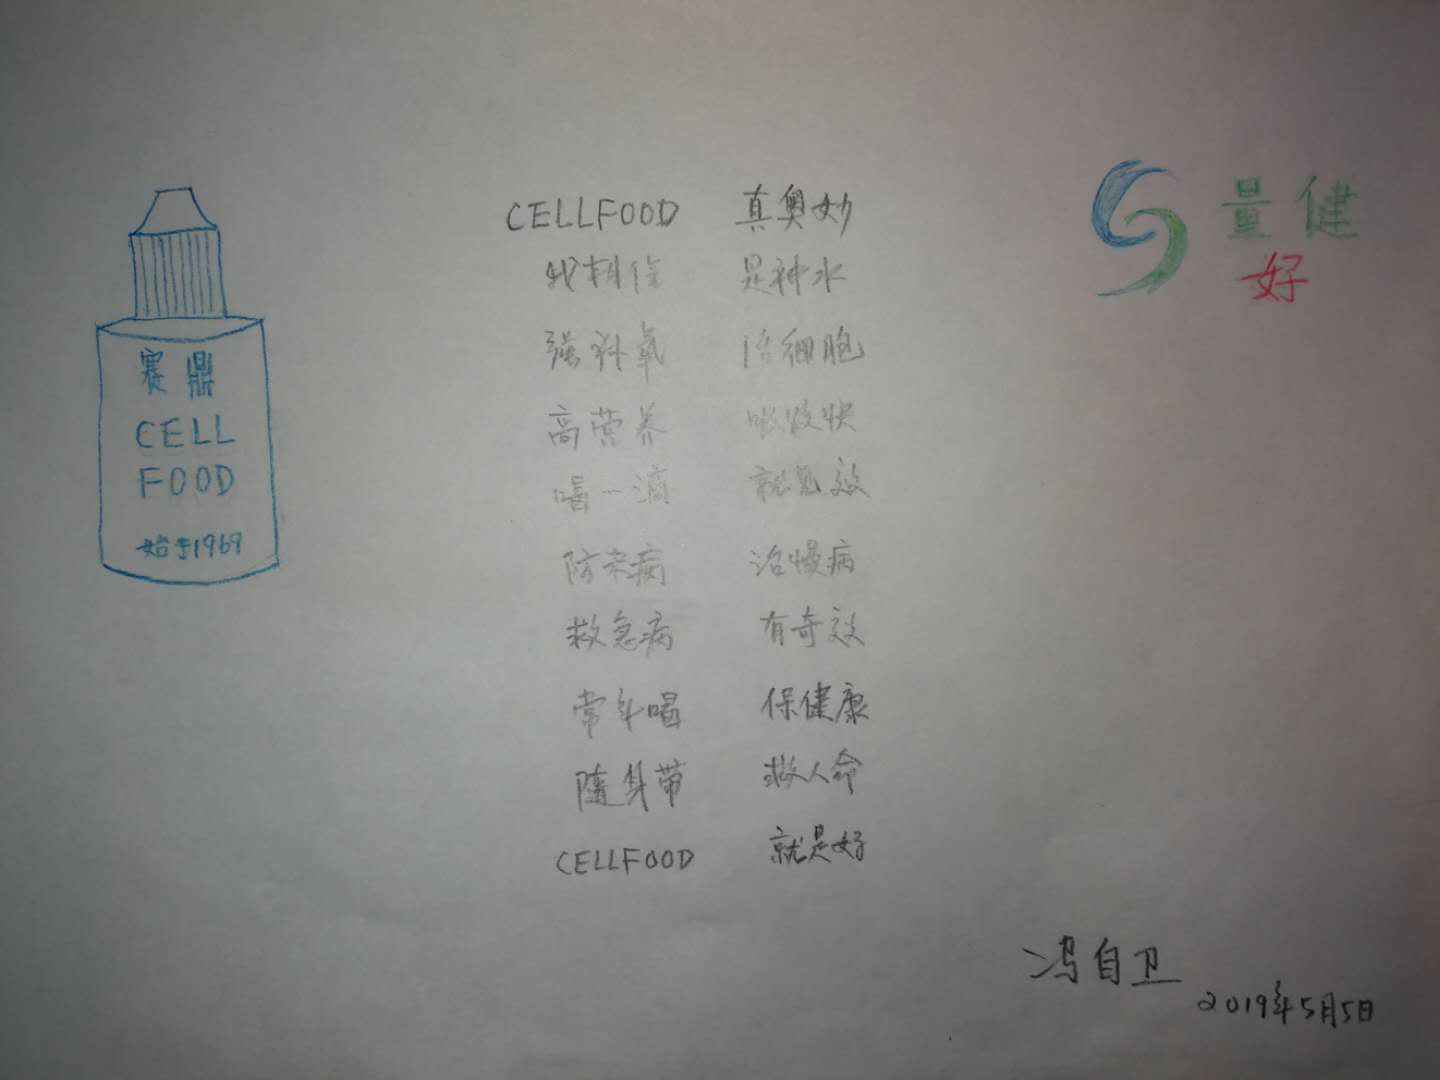 赛鼎
CELL
FOOD
始于1969
CELLFOOD 真奥妙
我相信 是神水
强补氧 活细胞
高营养 吸收快
喝一滴 就见效
防亲病 治慢病
救急病 有奇效
常年喝 保健康
随身带 救人命
CELLFOOD 就是好
量健
好
冯自卫
2019年5月5日